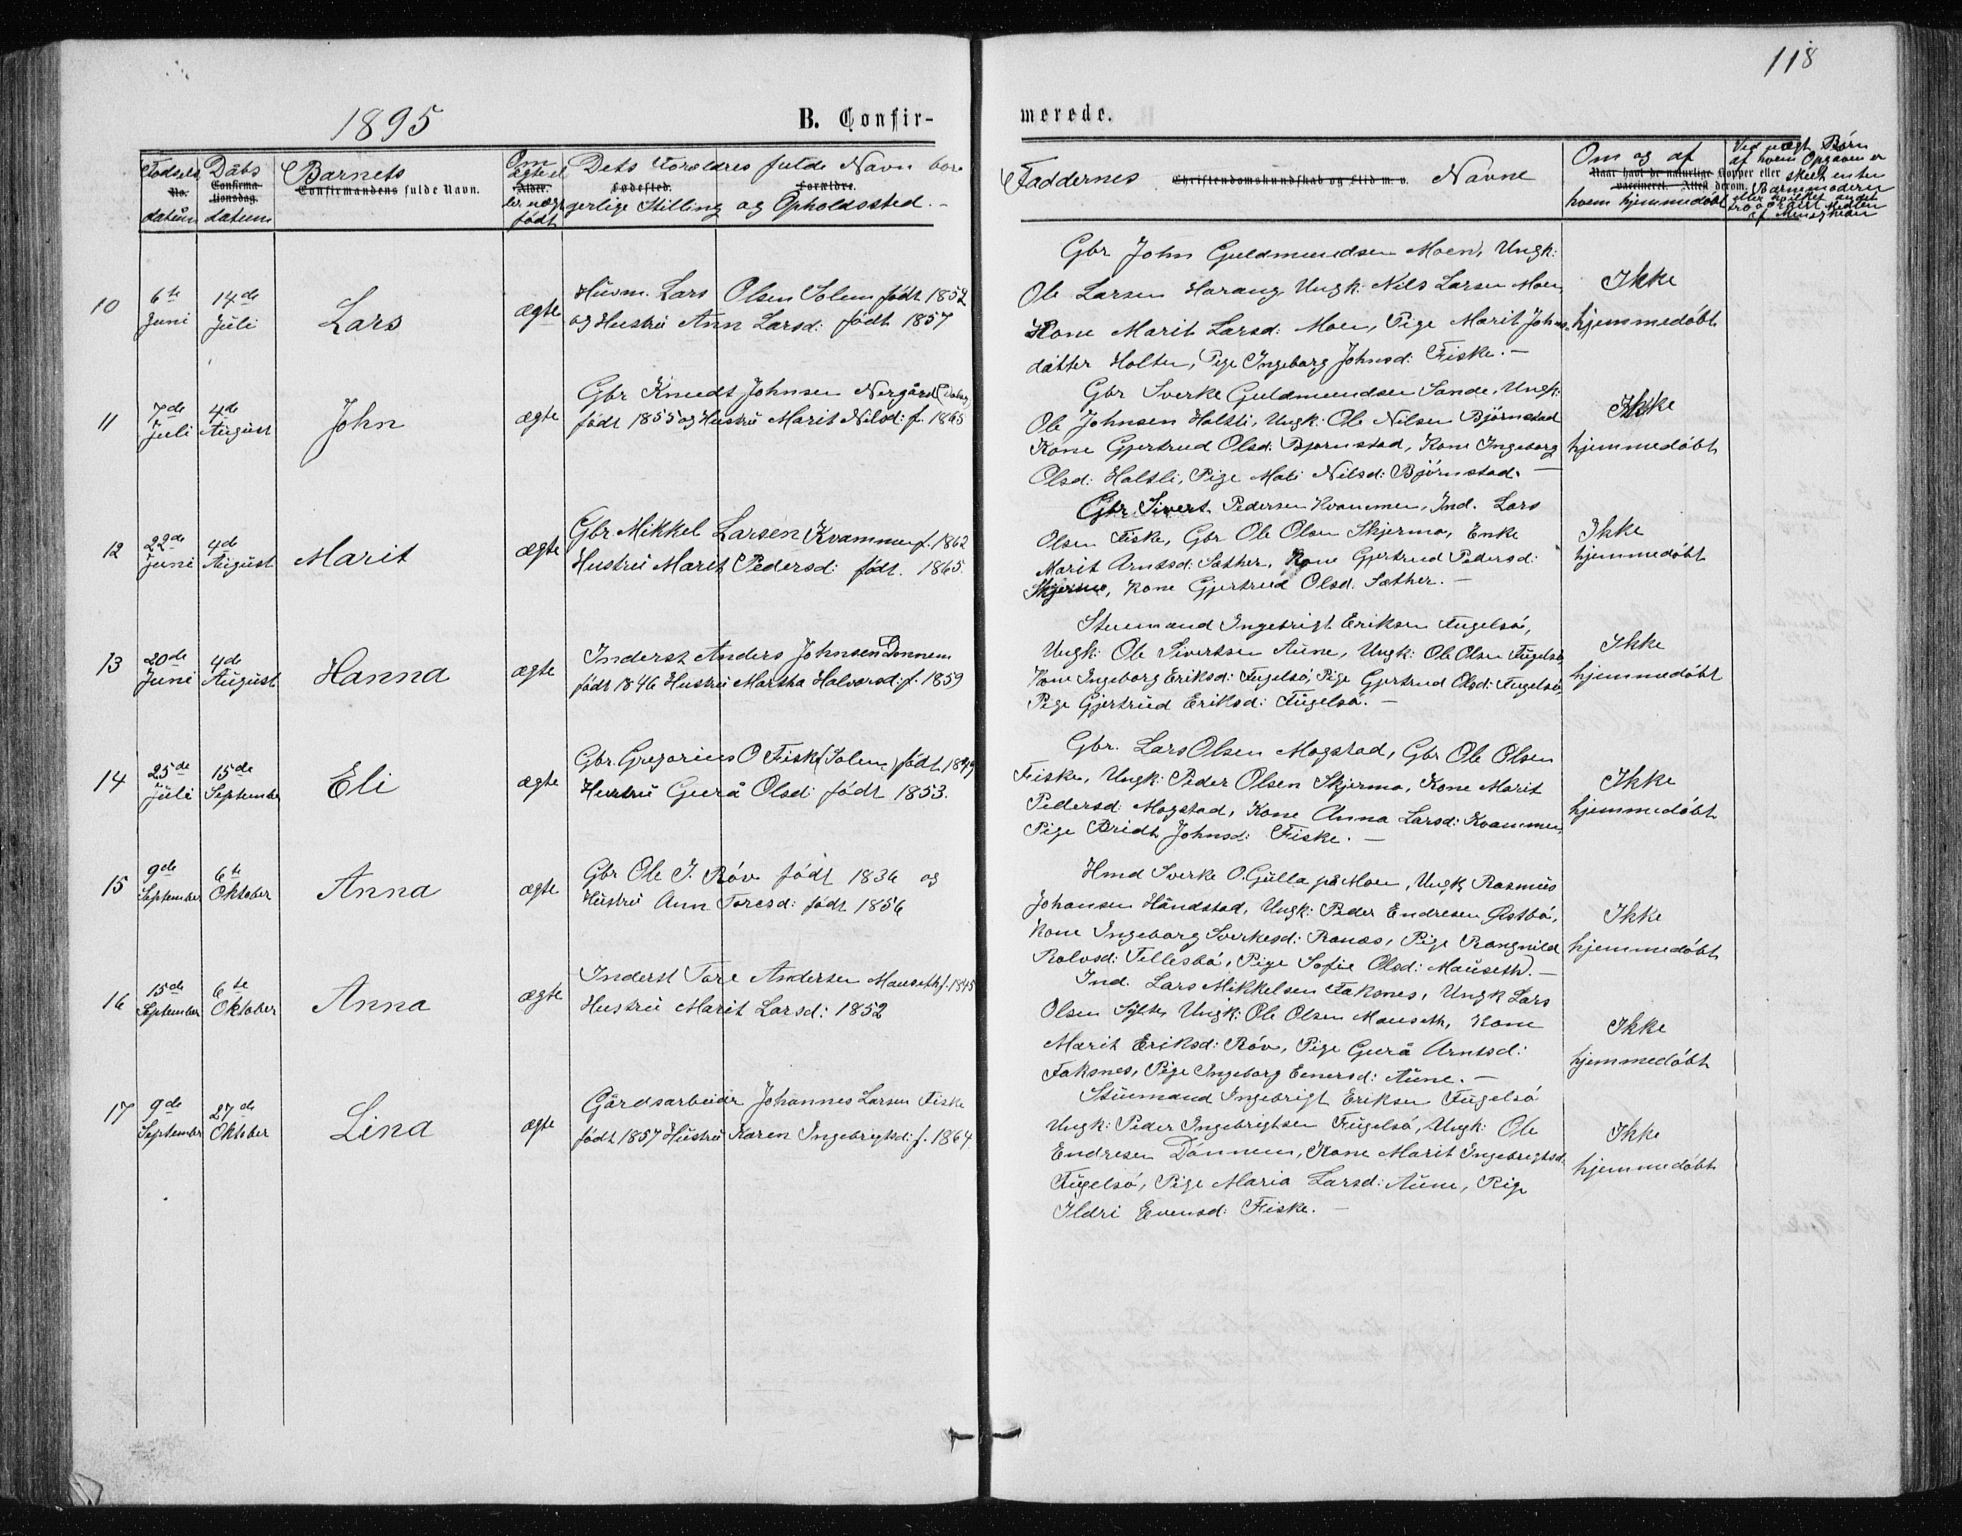 118
1895
B. Confir-
merede.
Fødsels
No.
datum
Dåbs
Confirma-
tionsdag.
datum
Barnets
Confirmandens fulde Navn.
Om
ægte el.
Alder.
ler uægt
født
Dets Foreldres fulde Navn bor
Fødested. Forældre.
gerlige Stilling og Opholdssted.-
Faddernes Christendomskundskab og Flid m. v. Navne
Om og af
Naar havt de naturlige Kopper eller
vaccineret. Attest derom.
hvem hjemmedøbt
Ved uægt Børn
af hvem Opgaven er
skeet enten
Barnemoderen
eller hvilket andet
10
6te
Juni
14de
Juli
Lars
ægte
Husm. Lars Olsen Solem født 1852
og Hustru Ann Larsd: født 1857
Gbr John Guldmundsen Moen, Ungk:
Ole Larsen Harang Ungk: Nils Larsen Moen,
Kone Marit Larsd: Moen, Pige Marit Johns-
datter Holten, Pige Ingeborg Johnsd: Fiske.-
Ikke
hjemmedøbt
11
7de
Juli
4de
August
John
ægte
Gbr Knudt Johnsen Nergård
født 1855 og Hustru Marit Nilsd: f. 1865
Gbr Sverke Guldmundsen Sande, Ungk:
Ole Johnsen Holtli, Ungk: Ole Nilsen Björnstad
Kone Gjertrud Olsd: Bjørnstad, Kone Ingeborg
Olsd: Holtli, Pige Mali Nilsd: Björnstad. -
Ikke
hjemmedøbt
12
22de
Juni
4de
August
Marit
ægte
Gbr. Mikkel Larsen Kvammen f. 1862
Hustru Marit Pedersd: født. 1865.
Gbr. Sivert Pedersen Kvammen, Ind. Lars
Olsen Fiske, Gbr Ole Olsen Skjermo, Enke
Marit Arntsd: Sæther, Kone Gjertrud Pedersd:
Skjermo, Kone Gjertrud Olsd. Sæther. -
Ikke
hjemmedøbt
13
20de
Juni
4de
August
Hanna
ægte
Inderst Anders Johnsen Donnem
født 1846 Hustru Martha Halvorsd: f. 1859
Stuemand Ingebrigt Eriksen Fugelsö,
Ungk: Ole Sivertsen Aune, Ungk: Ole Olsen Fugelsö,
Kone Ingeborg Eriksd: Fugelsö, Pige Gjertrud Olsd: Fugelsö,
Pige Gjertrud Eriksd: Fugelsö. -
Ikke
hjemmedøbt
14
25de
Juli
15de
September
Eli
ægte
Gbr. Gregorius O Fiske (Solem) født 1849
Hustru Gurå Olsd: født 1853.
Gbr. Lars Olsen Mogstad, Gbr Ole Olsen
Fiske, Ungk: Peder Olsen Skjermo, Kone Marit
Pedersd: Mogstad, Kone Anna Larsd: Kvammen,
Pige Bridt Johnsd: Fiske. -
Ikke
hjemmedøbt
15
9de
September
6te
Oktober
Anna
ægte
Gbr Ole J. Røv født 1836 og
Hustru Ann Toresd: født 1856
Hmd Sverke O. Gulla på Moen, Ungk Rasmus
Johansen Håndstad, Ungk: Peder Endresen Østbö,
Kone Ingeborg Sverkesd: Ranæs, Pige Rangnild
Rolvsd: Tellesbö, Pige Sofie Olsd: Mauseth. -
Ikke
hjemmedøbt
16
15de
September
6te
Oktober
Anna
ægte
Inderst Tore Andersen Mauseth f. 1845
Hustru Marit Larsd: 1852
Ind. Lars Mikkelsen Faksnes, Ungk Lars
Olsen Sylte Ungk: Ole Olsen Mauseth, Kone
Marit Eriksd: Røv, Pige Gurå Arntsd:
Faksnes, Pige Ingeborg Einersd: Aune. -
Ikke
hjemmedøbt
17
9de
September
27de
Oktober
Lina
ægte
Gårdsarbeider Johannes Larsen Fiske
født 1857 Hustru Karen Ingebrigtsd: f. 1864
Stuemand Ingebrigt Eriksen Fugelsö
Ungk: Peder Ingebrigtsen Fugelsö, Ungk: Ole
Endresen Dönnem, Kone Marit Ingebrigtsd:
Fugelsö, Pige Maria Larsd: Aune, Pige
Ildri Evensd: Fiske. -
Ikke
hjemmedøbt